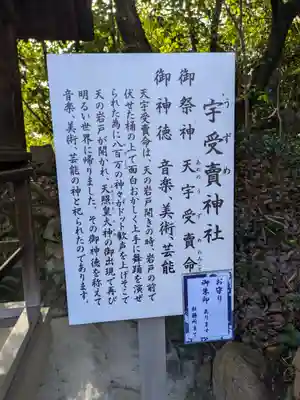 宇受賣神社
うずめ
御祭神　天宇受賣命
あめのうずめのみこと
御神徳　音楽、美術、芸能
天宇受賣命は、天の岩戸開きの時、岩戸の前で
伏せた桶の上で面白おかしく上手に舞踊を演ぜ
られた為に八百万の神々がドット歓声を上げそこで
天の岩戸が開かれ、天照皇大神の御出現で再び
明るい世界に帰りました。その御神徳を称えて
音楽、美術、芸能の神と祀られたのであります。
お守り
御朱印　あります
社務所まで